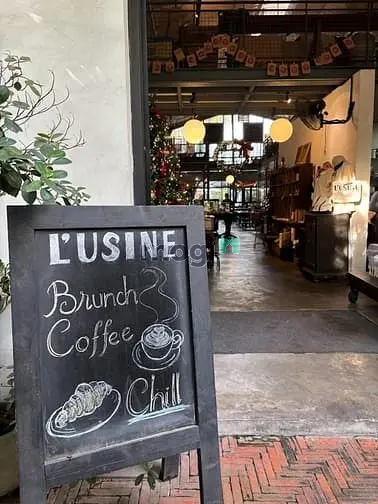 L'USINE
Brunch
Coffee
Chill
L'USINE